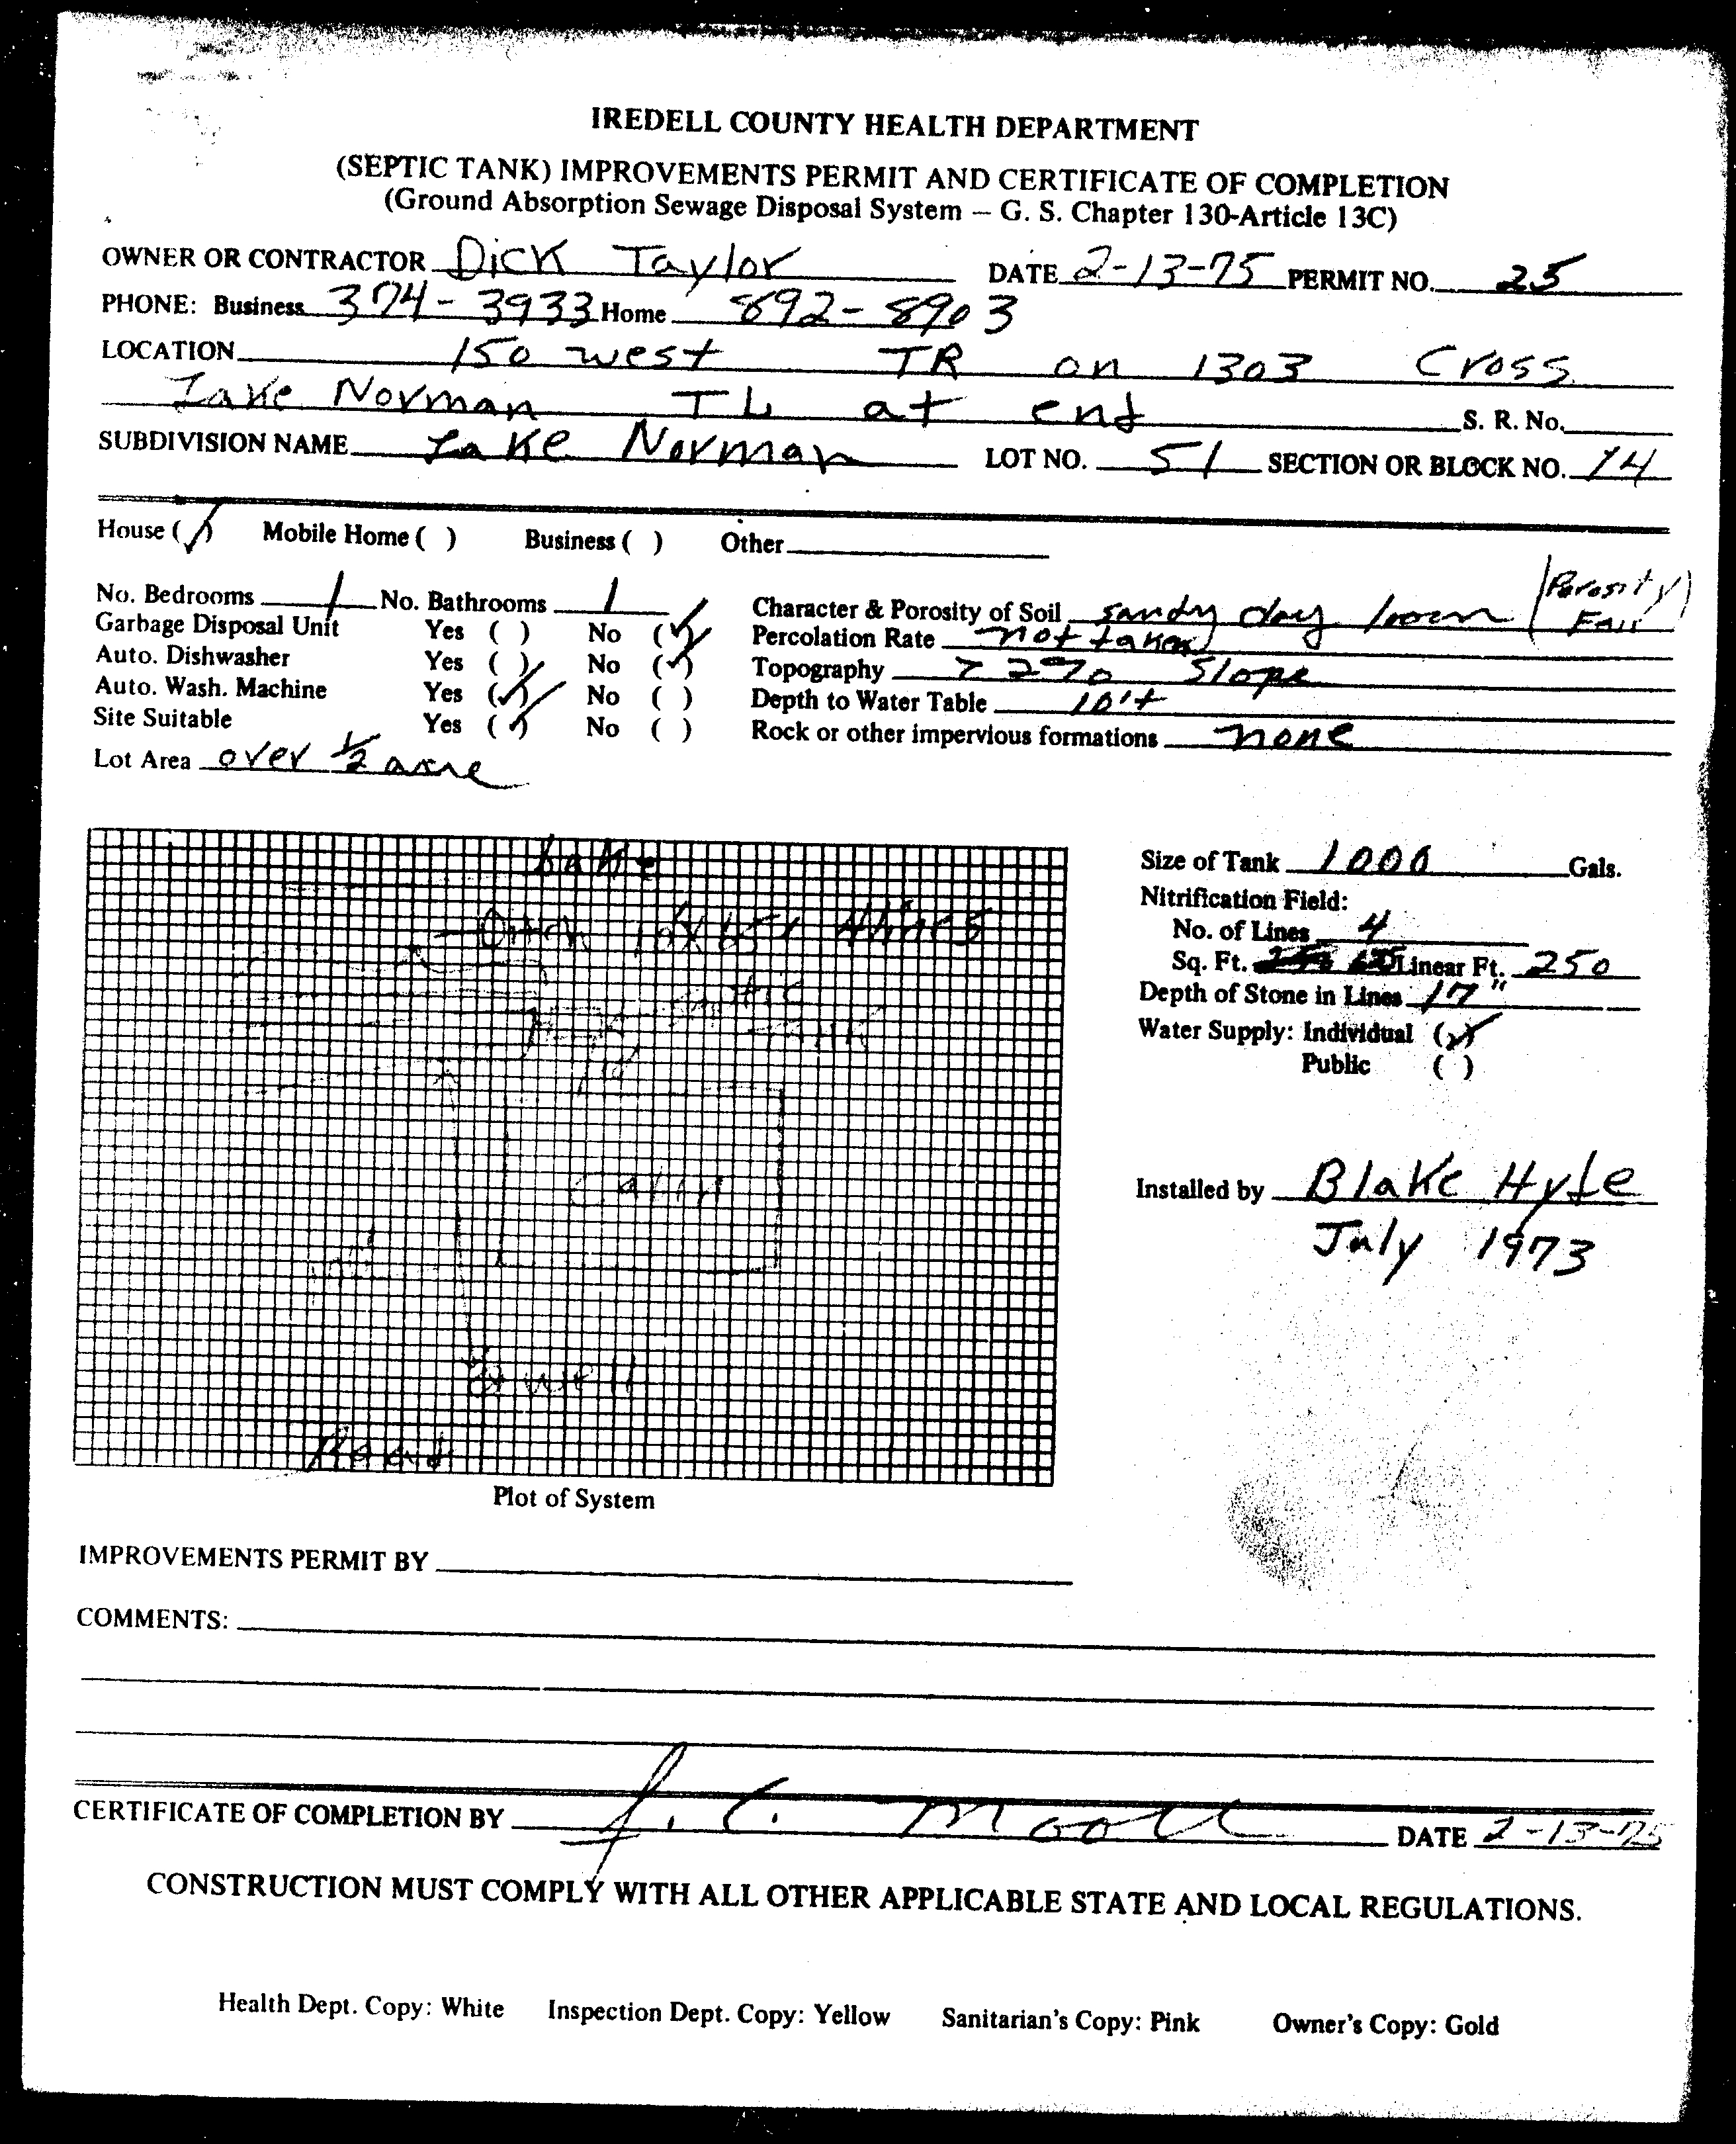 IREDELL COUNTY HEALTH DEPARTMENT
(SEPTIC TANK) IMPROVEMENTS PERMIT AND CERTIFICATE OF COMPLETION
(Ground Absorption Sewage Disposal System — G. S. Chapter 130-Article 13C)
OWNER OR CONTRACTOR Dick Taylor DATE 2-13-75 PERMIT NO. 25
PHONE: Business 374-3933 Home 892-8903
LOCATION 150 west TR on 1303 Cross
Lake Norman TL at end S. R. No.
SUBDIVISION NAME Lake Norman LOT NO. 51 SECTION OR BLOCK NO. 14
House (✓) Mobile Home ( ) Business ( ) Other
No. Bedrooms 1 No. Bathrooms 1 Character & Porosity of Soil sandy clay loam (Porosity Fair)
Garbage Disposal Unit Yes ( ) No (✓) Percolation Rate not taken
Auto. Dishwasher Yes ( ) No (✓) Topography > 2% Slope
Auto. Wash. Machine Yes (✓) No ( ) Depth to Water Table 10'+
Site Suitable Yes (✓) No ( ) Rock or other impervious formations none
Lot Area over ½ acre
Lake
4 lines
Septic
Tank
Cabin
Well
Road
Plot of System
Size of Tank 1000 Gals.
Nitrification Field:
No. of Lines 4
Sq. Ft. Linear Ft. 250
Depth of Stone in Lines 17"
Water Supply: Individual (✓)
Public ( )
Installed by Blake Hyde
July 1973
IMPROVEMENTS PERMIT BY
COMMENTS:
CERTIFICATE OF COMPLETION BY J. C. Moore DATE 2-13-75
CONSTRUCTION MUST COMPLY WITH ALL OTHER APPLICABLE STATE AND LOCAL REGULATIONS.
Health Dept. Copy: White Inspection Dept. Copy: Yellow Sanitarian's Copy: Pink Owner's Copy: Gold